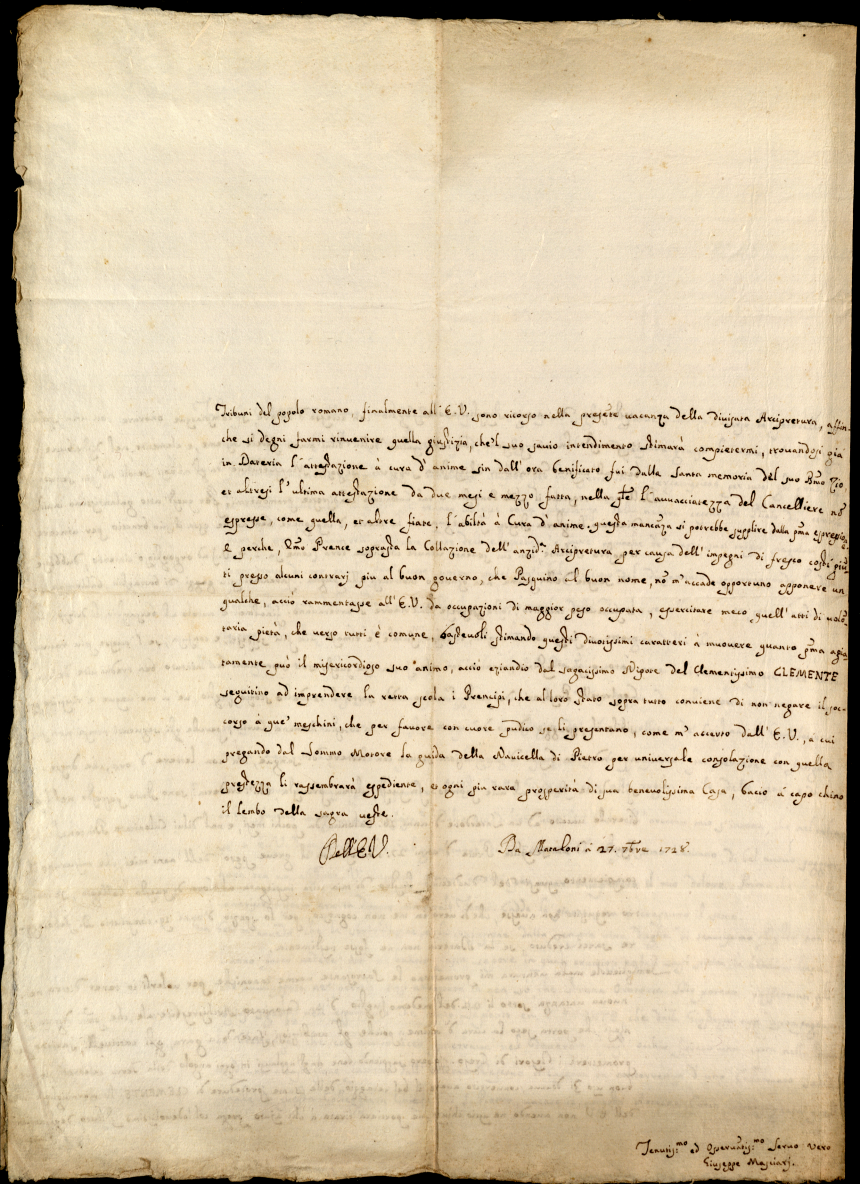 Tribuni del popolo romano, finalmente all' E.V. sono ricorso nella presẽte vacanza della divisata Arcipretura, affin-
che si degni farmi rinvenire quella giustizia, che'l suo savio intendimento stimarà compietermi, trovandosi già
in Dateria l'attestazione à cura d'anime sin dall'ora benificato fui dalla santa memoria del suo Rmo Zio
et altresi l'ultima attestazione da due mesi e mezzo fatta, nella l'avvacciatezza del Cancelliere nõ
espresse, come quella, et altre fiate, l'abiltà à Cura d'anime. questa mancãza si potrebbe supplire dalla pma espressio:
E perche, Emo Prence soprasta la Collazione dell'anzida Arcipretura per causa dell'impegni di fresco costì giũ-
ti presso alcuni contrarj piu al buon governo, che Pasquino al buon nome, nõ m'accade opportuno apponere un
qualche, acciò rammentasse all' E.V. da occupazioni di maggior peso occupata, essercitare meco quell'atti di volõ-
taria pietà, che verso tutti è comune, bastevoli stimando questi divotissimi caratteri à muovere quanto pma agia-
tamente può il misericordioso suo animo, acciò eziandio dal sagacissimo Nipote del Clementissimo CLEMENTE
seguitino ad imprendere la retta scola i Prencipi, che al loro stato sopra tutto conviene di non negare il soc-
corso à que' meschini, che per favore con cuore pudico se li presentano, come m'accerto dall' E.V., à cui
pregando dal Sommo Motore la guida della Navicella di Pietro per universale consolazione con quella
prestezza li rassembrarà espediente, et ogni piu rara prosperità di sua benevolissima Casa, bacio à capo chino
il lembo della sagra veste.
Dell' E.V. Da Mataloni à 27. 7bre 1728.
Tenutis:mo ed Osservãtis:mo Servo vero
Giuseppe Masciarj.